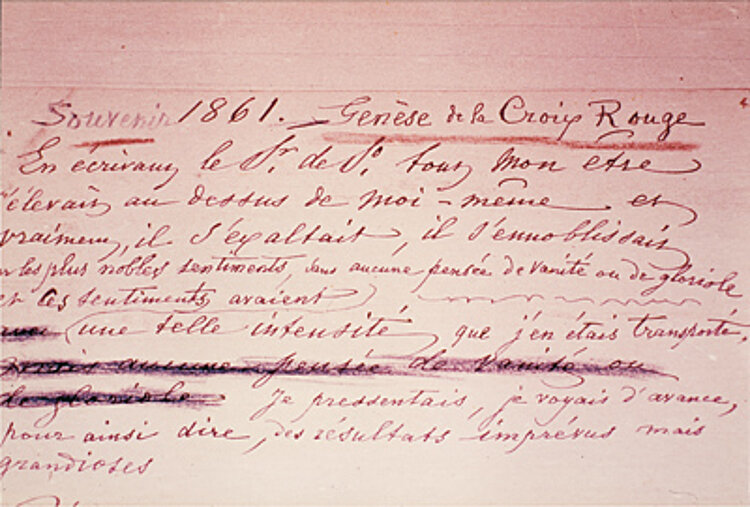 Souvenir 1861. — Genèse de la Croix Rouge
En écrivant le Sr. de So. tout mon être
s'élevait au dessus de moi-même et
vraiment, il s'exaltait, il s'ennoblissait
les plus nobles sentiments, sans aucune pensée de vanité ou de gloriole
et ces sentiments avaient
avec une telle intensité que j'en étais transporté.
mais aucune pensée de vanité ou
de gloriole Je pressentais, je voyais d'avance,
pour ainsi dire, des résultats imprévus mais
grandioses